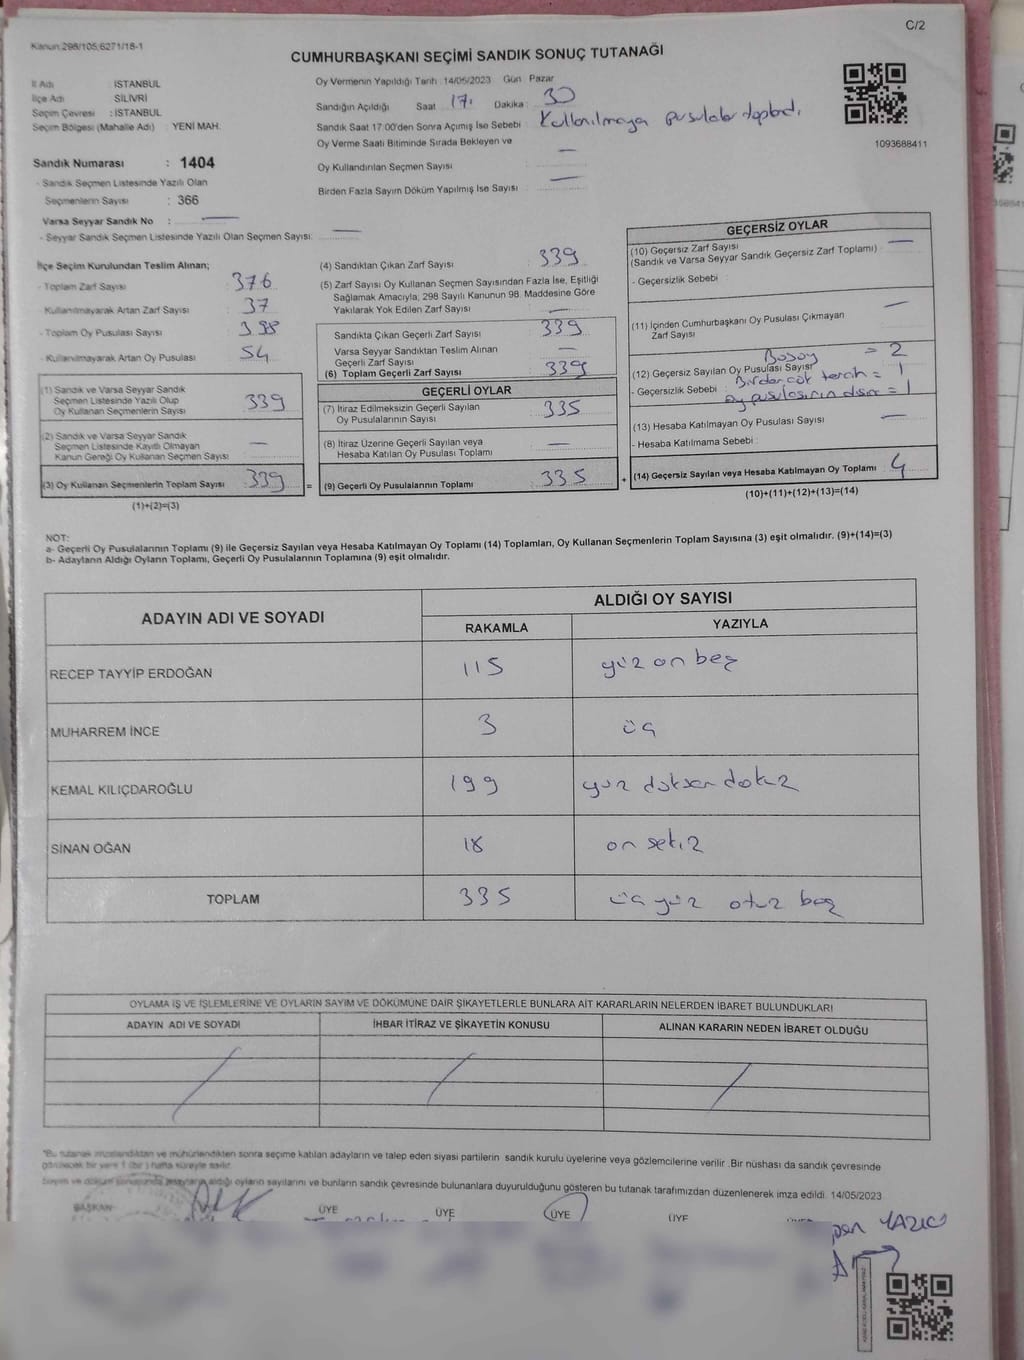 C/2
Kanun:298/105;6271/18-1
CUMHURBAŞKANI SEÇİMİ SANDIK SONUÇ TUTANAĞI
İl Adı : İSTANBUL
İlçe Adı : SİLİVRİ
Seçim Çevresi : İSTANBUL
Seçim Bölgesi (Mahalle Adı) : YENİ MAH.
Oy Vermenin Yapıldığı Tarih :14/05/2023 Gün : Pazar
Sandığın Açıldığı Saat : 17: Dakika : 30
Sandık Saat 17:00'den Sonra Açımış İse Sebebi : Kullanılmayan pusulalar toplandı.
Oy Verme Saati Bitiminde Sırada Bekleyen ve
Oy Kullandırılan Seçmen Sayısı —
Birden Fazla Sayım Döküm Yapılmış İse Sayısı —
1093688411
Sandık Numarası : 1404
- Sandık Seçmen Listesinde Yazılı Olan
Seçmenlerin Sayısı : 366
Varsa Seyyar Sandık No : —
- Seyyar Sandık Seçmen Listesinde Yazılı Olan Seçmen Sayısı: —
İlçe Seçim Kurulundan Teslim Alınan;
- Toplam Zarf Sayısı : 376
Kullanılmayarak Artan Zarf Sayısı : 37
- Toplam Oy Pusulası Sayısı : 398
- Kullanılmayarak Artan Oy Pusulası : 54
(1) Sandık ve Varsa Seyyar Sandık
Seçmen Listesinde Yazılı Olup
Oy Kullanan Seçmenlerin Sayısı : 339
(2) Sandık ve Varsa Seyyar Sandık
Seçmen Listesinde Kayıtlı Olmayan
Kanun Gereği Oy Kullanan Seçmen Sayısı : —
(3) Oy Kullanan Seçmenlerin Toplam Sayısı : 339 =
(1)+(2)=(3)
(4) Sandıktan Çıkan Zarf Sayısı : 339
(5) Zarf Sayısı Oy Kullanan Seçmen Sayısından Fazla İse, Eşitliği
Sağlamak Amacıyla, 298 Sayılı Kanunun 98. Maddesine Göre
Yakılarak Yok Edilen Zarf Sayısı : —
Sandıkta Çıkan Geçerli Zarf Sayısı : 339
Varsa Seyyar Sandıktan Teslim Alınan
Geçerli Zarf Sayısı : —
(6) Toplam Geçerli Zarf Sayısı : 339
GEÇERLİ OYLAR
(7) İtiraz Edilmeksizin Geçerli Sayılan
Oy Pusulalarının Sayısı : 335
(8) İtiraz Üzerine Geçerli Sayılan veya
Hesaba Katılan Oy Pusulası Toplamı : —
(9) Geçerli Oy Pusulalarının Toplamı : 335 +
GEÇERSİZ OYLAR
(10) Geçersiz Zarf Sayısı : —
(Sandık ve Varsa Seyyar Sandık Geçersiz Zarf Toplamı)
- Geçersizlik Sebebi :
(11) İçinden Cumhurbaşkanı Oy Pusulası Çıkmayan : —
Zarf Sayısı
= 2
(12) Geçersiz Sayılan Oy Pusulası Sayısı :
- Geçersizlik Sebebi : Birden çok tercih = 1
oy pusulasının = 1
(13) Hesaba Katılmayan Oy Pusulası Sayısı : —
- Hesaba Katılmama Sebebi :
(14) Geçersiz Sayılan veya Hesaba Katılmayan Oy Toplamı : 4
(10)+(11)+(12)+(13)=(14)
NOT:
a- Geçerli Oy Pusulalarının Toplamı (9) ile Geçersiz Sayılan veya Hesaba Katılmayan Oy Toplamı (14) Toplamları, Oy Kullanan Seçmenlerin Toplam Sayısına (3) eşit olmalıdır. (9)+(14)=(3)
b- Adayların Aldığı Oyların Toplamı, Geçerli Oy Pusulalarının Toplamına (9) eşit olmalıdır.
ADAYIN ADI VE SOYADI
ALDIĞI OY SAYISI
RAKAMLA YAZIYLA
RECEP TAYYİP ERDOĞAN 115 yüz on beş
MUHARREM İNCE 3 üç
KEMAL KILIÇDAROĞLU 199 yüz doksan dokuz
SİNAN OĞAN 18 on sekiz
TOPLAM 335 üç yüz otuz beş
OYLAMA İŞ VE İŞLEMLERİNE VE OYLARIN SAYIM VE DÖKÜMÜNE DAİR ŞİKAYETLERLE BUNLARA AİT KARARLARIN NELERDEN İBARET BULUNDUKLARI
ADAYIN ADI VE SOYADI İHBAR İTİRAZ VE ŞİKAYETİN KONUSU ALINAN KARARIN NEDEN İBARET OLDUĞU
*Bu tutanak imzalandıktan ve mühürlendikten sonra seçime katılan adayların ve talep eden siyasi partilerin sandık kurulu üyelerine veya gözlemcilerine verilir. Bir nüshası da sandık çevresinde
görülecek bir yere 1 (bir ) hafta süreyle asılır.
Sayım ve döküm sonucunda adayların aldığı oyların sayılarını ve bunların sandık çevresinde bulunanlara duyurulduğunu gösteren bu tutanak tarafımızdan düzenlenerek imza edildi. 14/05/2023
BAŞKAN ÜYE ÜYE ÜYE ÜYE
YAZICI